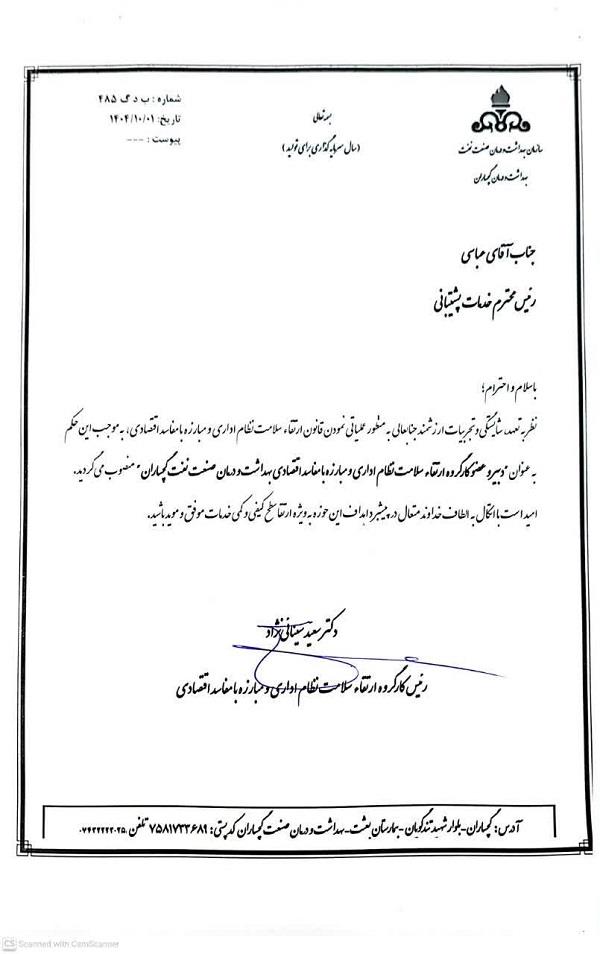 شماره : ب د گ ۴۸۵
تاریخ: ۱۴۰۴/۱۰/۰۱
پیوست : ---
بسمه تعالی
(سال سرمایه گذاری برای تولید)
سازمان بهداشت و درمان صنعت نفت
بهداشت و درمان گچساران
جناب آقای عباسی
رئیس محترم خدمات پشتیبانی
باسلام و احترام؛
نظر به تعهد، شایستگی و تجربیات ارزشمند جنابعالی به منظور عملیاتی نمودن قانون ارتقاء سلامت نظام اداری و مبارزه با مفاسد اقتصادی، به موجب این حکم
به عنوان "دبیر و عضو کارگروه ارتقاء سلامت نظام اداری و مبارزه با مفاسد اقتصادی بهداشت و درمان صنعت نفت گچساران" منصوب می گردید.
امید است با اتکال به الطاف خداوند متعال در پیشبرد اهداف این حوزه به ویژه ارتقا سطح کیفی و کمی خدمات موفق و موید باشید.
دکتر سعید نژاد
رئیس کارگروه ارتقاء سلامت نظام اداری و مبارزه با مفاسد اقتصادی
آدرس: گچساران- بلوار شهید تندگویان- بیمارستان بعثت- بهداشت و درمان صنعت گچساران کدپستی: ۷۵۸۱۷۳۳۶۸۹ تلفن
CS Scanned with CamScanner